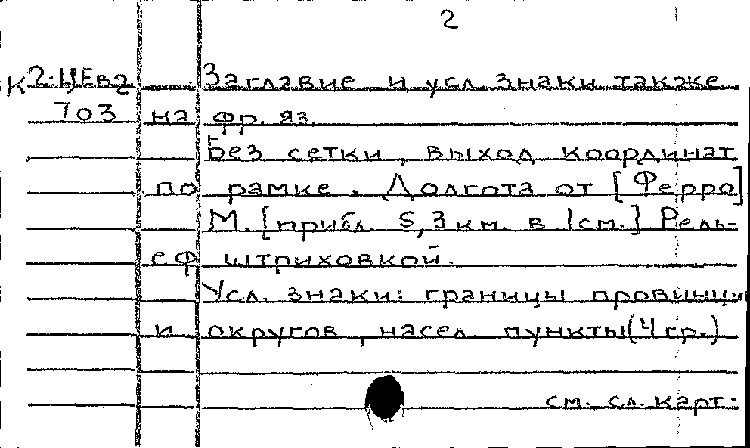 2
К 2-ЦЕв2 Заглавие и усл. знаки также
703 на фр. яз.
Без сетки, выход координат
по рамке. Долгота от [Ферро]
М. [прибл. 5,3 км. в 1 см.] Рель-
еф штриховкой.
Усл. знаки: границы провинци
и округов, насел. пункты (4 гр.)
см. сл. карт.